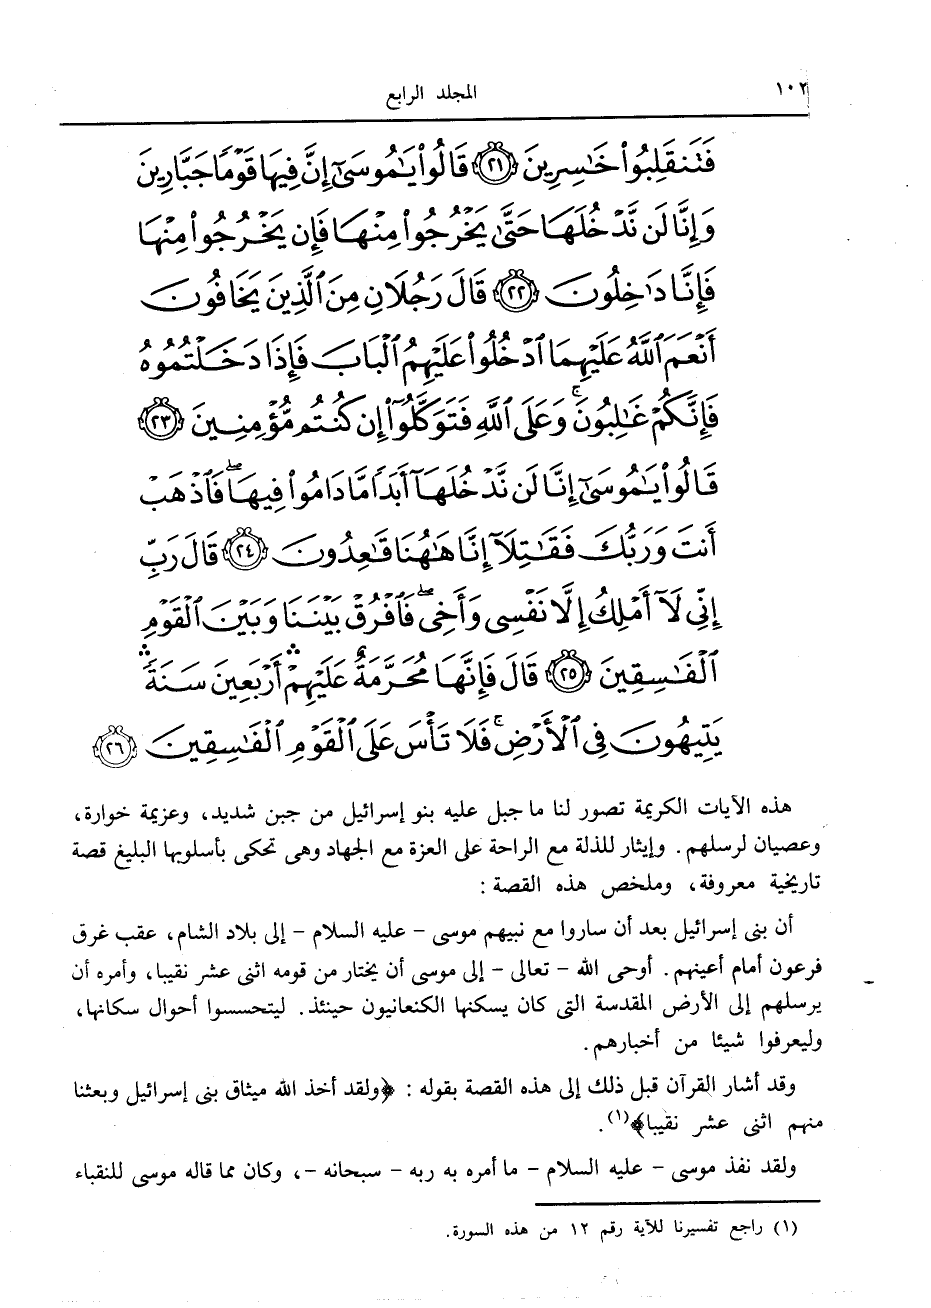 ١٠٢ المجلد الرابع
فَتَنقَلِبُوا۟ خَـٰسِرِينَ ﴿٢١﴾ قَالُوا۟ يَـٰمُوسَىٰٓ إِنَّ فِيهَا قَوْمًا جَبَّارِينَ
وَإِنَّا لَن نَّدْخُلَهَا حَتَّىٰ يَخْرُجُوا۟ مِنْهَا فَإِن يَخْرُجُوا۟ مِنْهَا
فَإِنَّا دَٰخِلُونَ ﴿٢٢﴾ قَالَ رَجُلَانِ مِنَ ٱلَّذِينَ يَخَافُونَ
أَنْعَمَ ٱللَّهُ عَلَيْهِمَا ٱدْخُلُوا۟ عَلَيْهِمُ ٱلْبَابَ فَإِذَا دَخَلْتُمُوهُ
فَإِنَّكُمْ غَـٰلِبُونَ ۚ وَعَلَى ٱللَّهِ فَتَوَكَّلُوٓا۟ إِن كُنتُم مُّؤْمِنِينَ ﴿٢٣﴾
قَالُوا۟ يَـٰمُوسَىٰٓ إِنَّا لَن نَّدْخُلَهَآ أَبَدًا مَّا دَامُوا۟ فِيهَا ۖ فَٱذْهَبْ
أَنتَ وَرَبُّكَ فَقَـٰتِلَآ إِنَّا هَـٰهُنَا قَـٰعِدُونَ ﴿٢٤﴾ قَالَ رَبِّ
إِنِّى لَآ أَمْلِكُ إِلَّا نَفْسِى وَأَخِى ۖ فَٱفْرُقْ بَيْنَنَا وَبَيْنَ ٱلْقَوْمِ
ٱلْفَـٰسِقِينَ ﴿٢٥﴾ قَالَ فَإِنَّهَا مُحَرَّمَةٌ عَلَيْهِمْ ۛ أَرْبَعِينَ سَنَةً ۛ
يَتِيهُونَ فِى ٱلْأَرْضِ ۚ فَلَا تَأْسَ عَلَى ٱلْقَوْمِ ٱلْفَـٰسِقِينَ ﴿٢٦﴾
هذه الآيات الكريمة تصور لنا ما جبل عليه بنو إسرائيل من جبن شديد، وعزيمة خوارة،
وعصيان لرسلهم. وإيثار للذلة مع الراحة على العزة مع الجهاد وهى تحكى بأسلوبها البليغ قصة
تاريخية معروفة، وملخص هذه القصة :
أن بنى إسرائيل بعد أن ساروا مع نبيهم موسى - عليه السلام - إلى بلاد الشام، عقب غرق
فرعون أمام أعينهم. أوحى الله - تعالى - إلى موسى أن يختار من قومه اثنى عشر نقيبا، وأمره أن
يرسلهم إلى الأرض المقدسة التى كان يسكنها الكنعانيون حينئذ. ليتحسسوا أحوال سكانها،
وليعرفوا شيئا من أخبارهم.
وقد أشار القرآن قبل ذلك إلى هذه القصة بقوله : ﴿ولقد أخذ الله ميثاق بنى إسرائيل وبعثنا
منهم اثنى عشر نقيبا﴾(١).
ولقد نفذ موسى - عليه السلام - ما أمره به ربه - سبحانه -، وكان مما قاله موسى للنقباء
(١) راجع تفسيرنا للآية رقم ١٢ من هذه السورة.